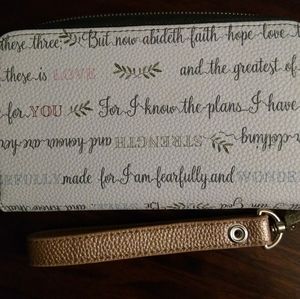 these three; But now abideth faith hope love t
these is LOVE and the greatest of
for YOU For I know the plans I have
and honour are her STRENGTH clothing
EFULLY made for I am fearfully and WONDE